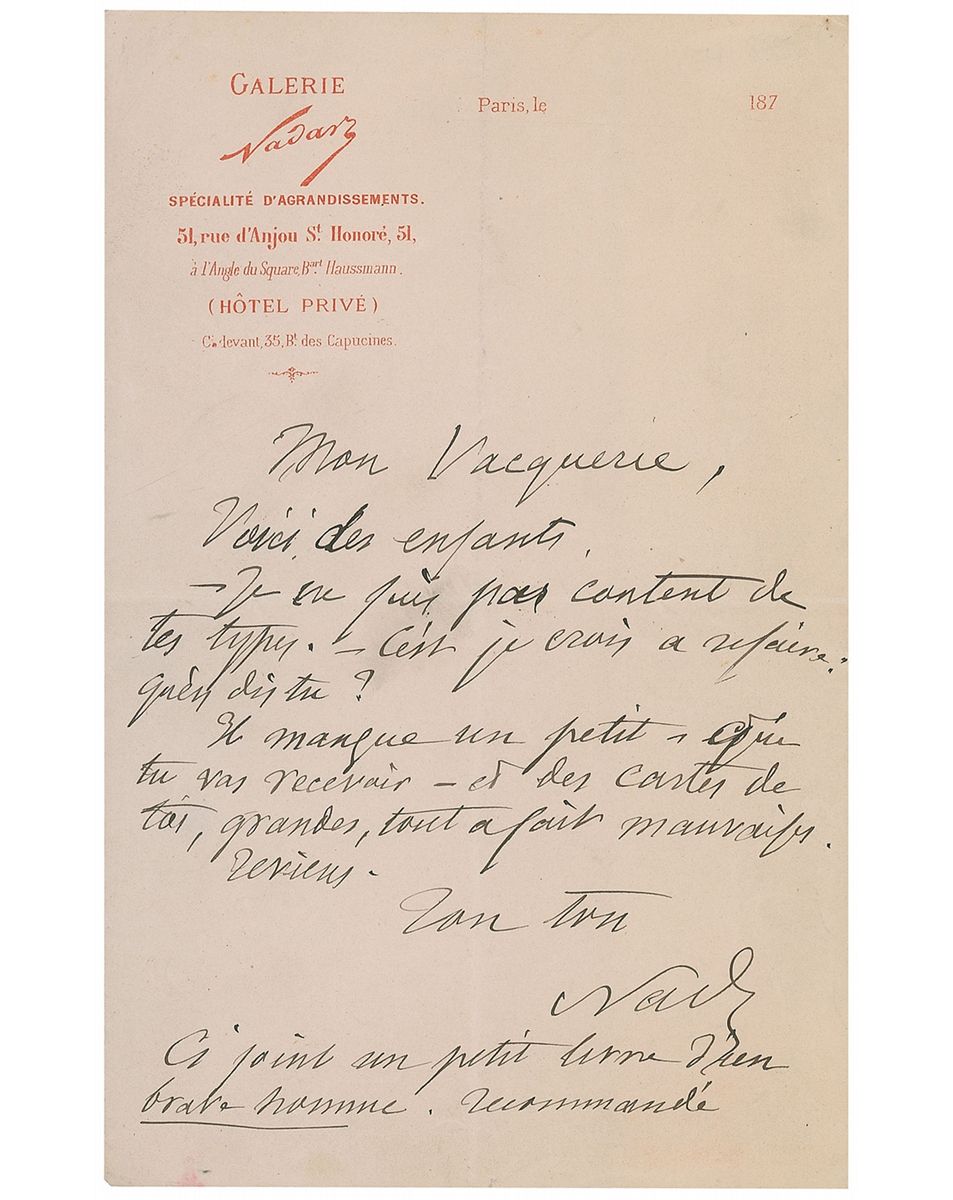 GALERIE
Nadar
SPÉCIALITÉ D'AGRANDISSEMENTS.
51, rue d'Anjou St. Honoré, 51,
à l'Angle du Square, Bart. Haussmann.
(HÔTEL PRIVÉ)
Ci-devant, 35, Bt. des Capucines.
Paris, le 187
Mon Vacquerie,
Voici des enfants.
— Je ne suis pas content de
tes types. — C'est je crois a refaire.
qu'en dis tu ?
Il manque un petit — que
tu vas recevoir — et des cartes de
toi, grandes, tout a fait mauvaises.
Reviens.
Ton ton
Nad
Ci joint un petit livre d'un
brave homme. recommandé